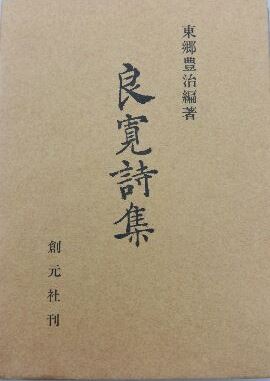 東郷豊治編著
良寛詩集
創元社刊